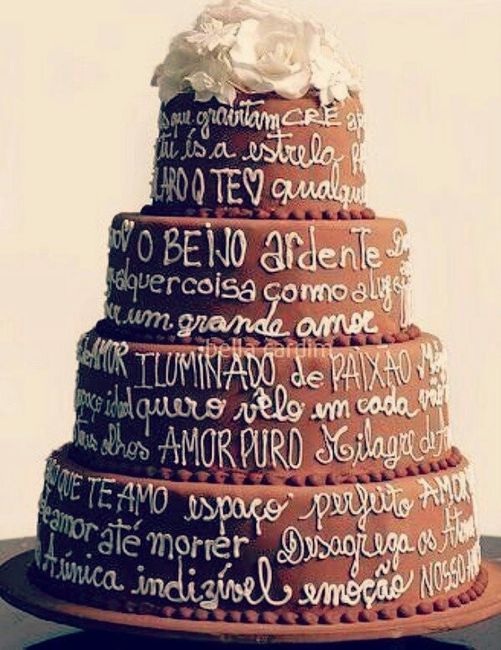 que gravitam CRE
tu és a estrela
LARO Q TE♡ qualque
O BEIJO ardente
qualquer coisa como a luz
um grande amor
bella cardim
AMOR ILUMINADO de PAIXÃO
espaço ideal quero vê-lo em cada vão
teus olhos AMOR PURO Milagre de
QUE TE AMO espaço perfeito AMOR
amor até morrer Desagrega os Atom
A única indizível emoção NOSSO